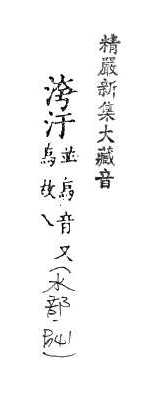 精嚴新集大藏音
汙並烏音又(水部
烏故